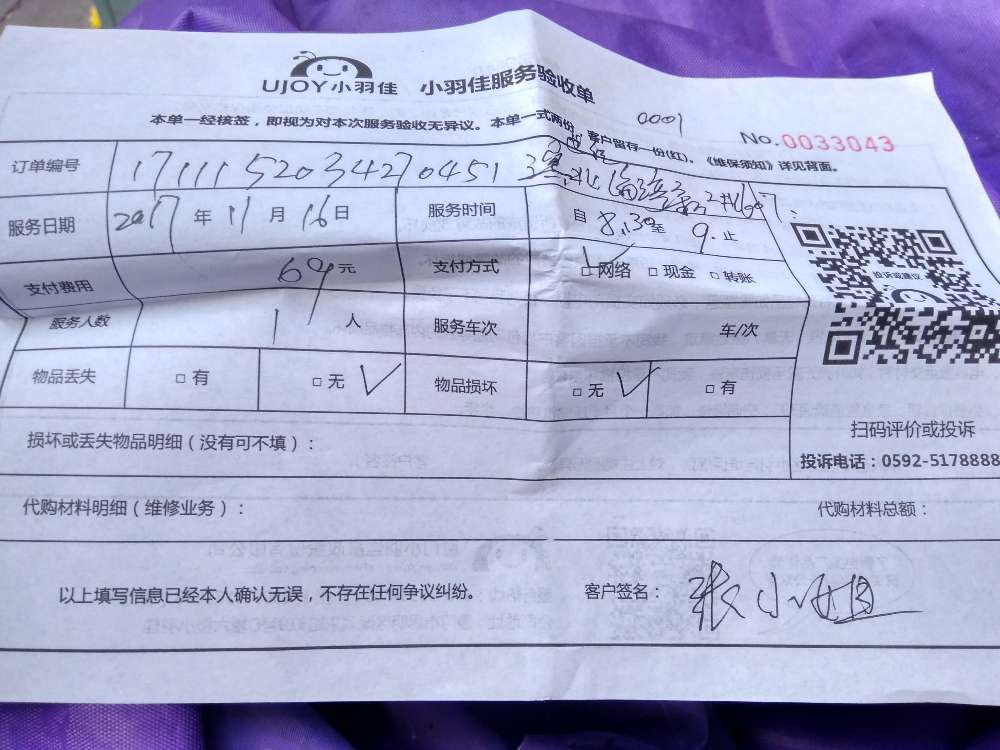 UJOY小羽佳 小羽佳服务验收单
0001
本单一经核签，即视为对本次服务验收无异议。本单一式两份，客户留存一份(红)。《维保须知》详见背面。
No.0033043
订单编号 171111520342704513
服务日期 2017年11月16日 服务时间 自8.30至9.止
支付费用 69元 支付方式 □网络 □现金 □转账
服务人数 1人 服务车次 车/次
物品丢失 □有 □无 物品损坏 □无 □有
投诉或建议
扫码评价或投诉
投诉电话：0592-5178888
损坏或丢失物品明细（没有可不填）：
代购材料明细（维修业务）： 代购材料总额：
以上填写信息已经本人确认无误，不存在任何争议纠纷。 客户签名：张小姐